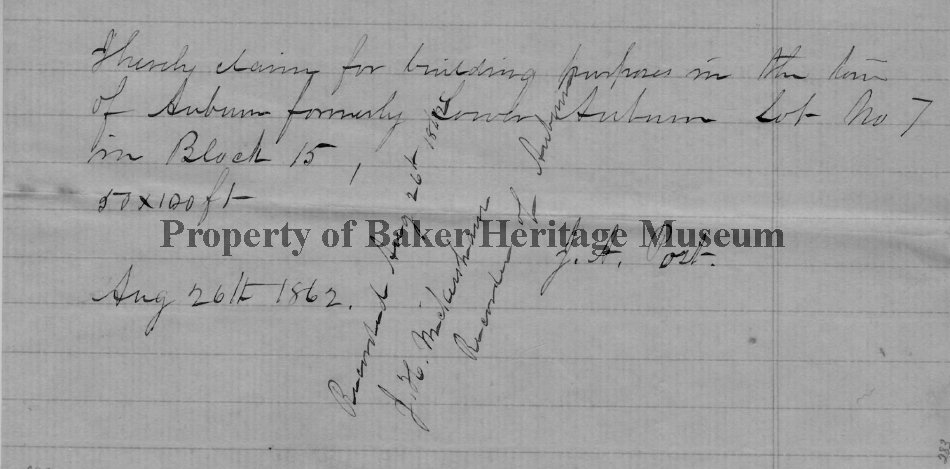 I hereby claim for building purposes in the town
of Auburn formerly Lower Auburn Lot No 7
in Block 15,
50x100 ft
J. A. Post.
Aug 26th 1862.
Recorded Aug 26th 1862
J. H.
Recorder of Auburn
Property of Baker Heritage Museum